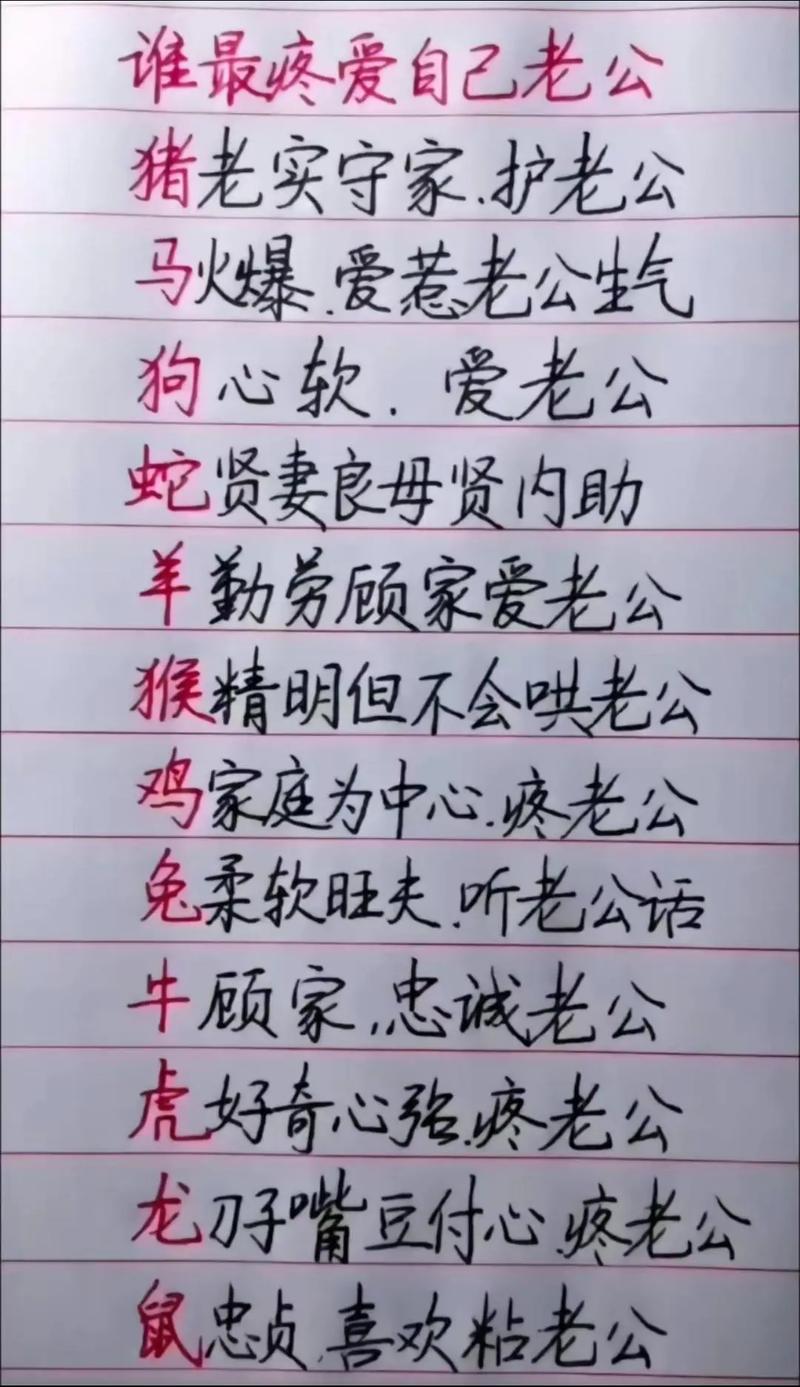 谁最疼爱自己老公
猪老实守家.护老公
马火爆.爱惹老公生气
狗心软.爱老公
蛇贤妻良母贤内助
羊勤劳顾家爱老公
猴精明但不会哄老公
鸡家庭为中心.疼老公
兔柔软旺夫.听老公话
牛顾家,忠诚老公
虎好奇心强.疼老公
龙刀子嘴豆付心.疼老公
鼠忠贞.喜欢粘老公